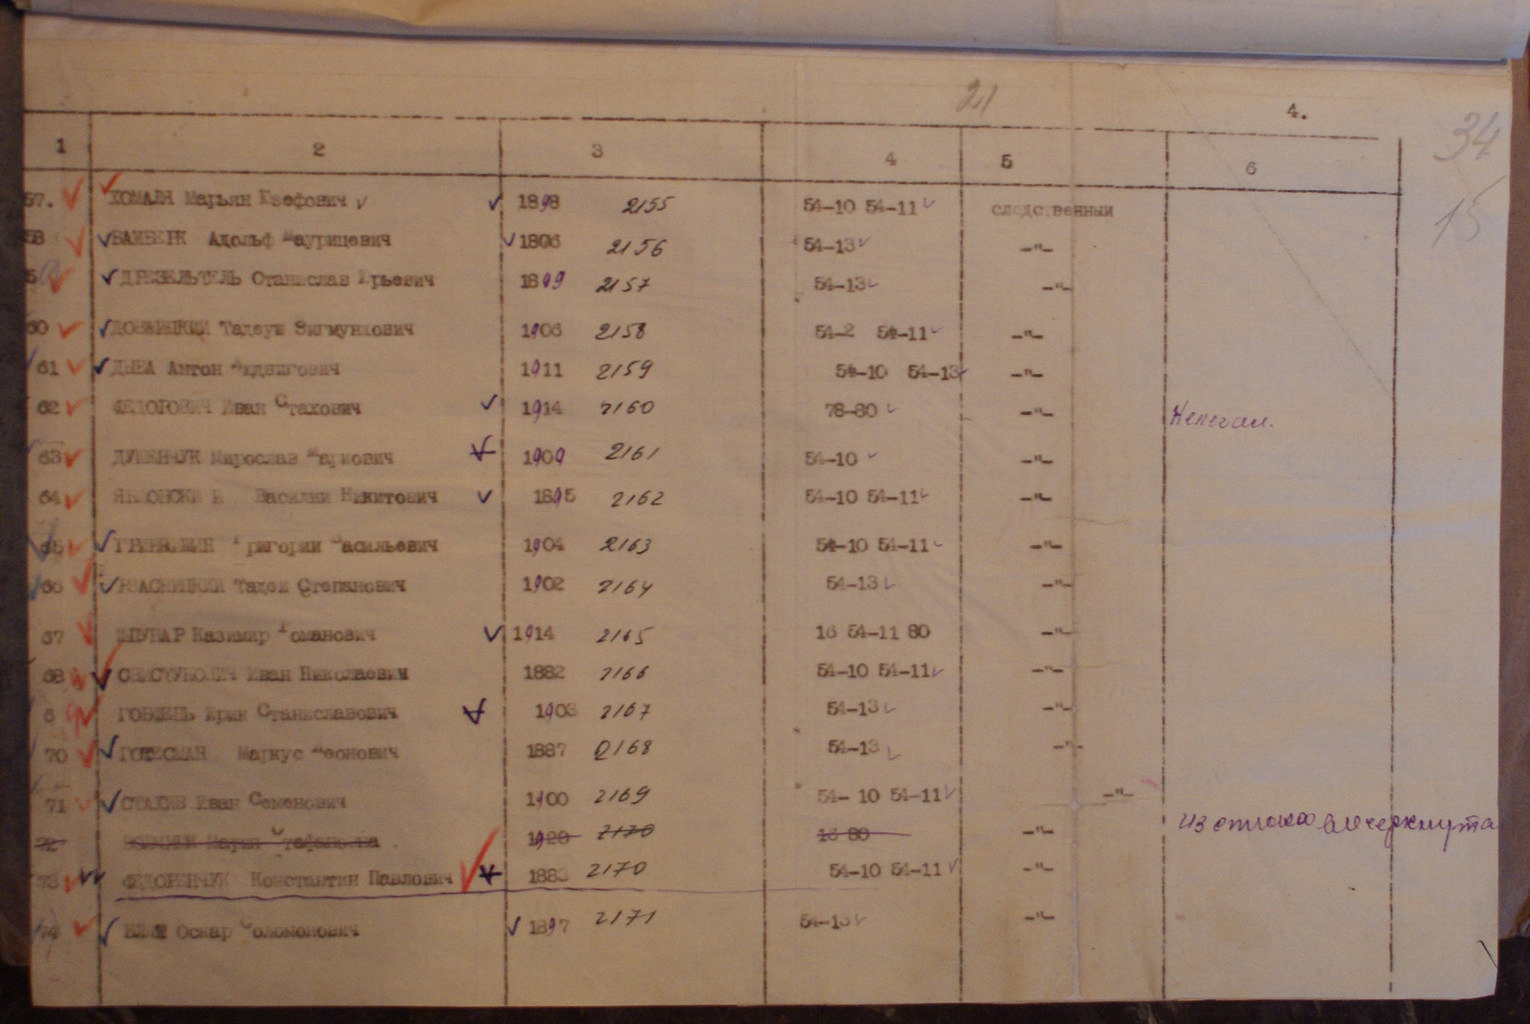 21
4.
34
15
1 2 3 4 5 6
57. ХОМАЛЯ Марьян Юзефович 1898 2155 54-10 54-11 следственный
58 Адольф Маурицевич 1896 2156 54-13 -"-
59 Станислав Юрьевич 1899 2157 54-13 -"-
60 Тадеуш Зигмунтович 1906 2158 54-2 54-11 -"-
61 Антон 1911 2159 54-10 54-13 -"-
62 ФЕДОРОВИЧ Иван Стахович 1914 2160 78-80 -"- Нелегал.
63 Мирослав Маркович 1909 2161 54-10 -"-
64 Василий Никитович 1895 2162 54-10 54-11 -"-
65 Григорий Васильевич 1904 2163 54-10 54-11 -"-
66 КРАСНИЦКИЙ Тадей Степанович 1902 2164 54-13 -"-
67 Казимир Романович 1914 2165 16 54-11 80 -"-
68 СВИСТУНОВИЧ Иван Николаевич 1882 2166 54-10 54-11 -"-
69 Станиславович 1903 2167 54-13 -"-
70 ГОТЕСМАН Маркус Леонович 1887 2168 54-13 -"-
71 СТАХИВ Иван Семенович 1900 2169 54-10 54-11 -"-
72 Мария 1920 2170 16 80 -"- из списка вичеркнута
73 Константин Павлович 1883 2170 54-10 54-11 -"-
74 Оскар Соломонович 1897 2171 54-13 -"-